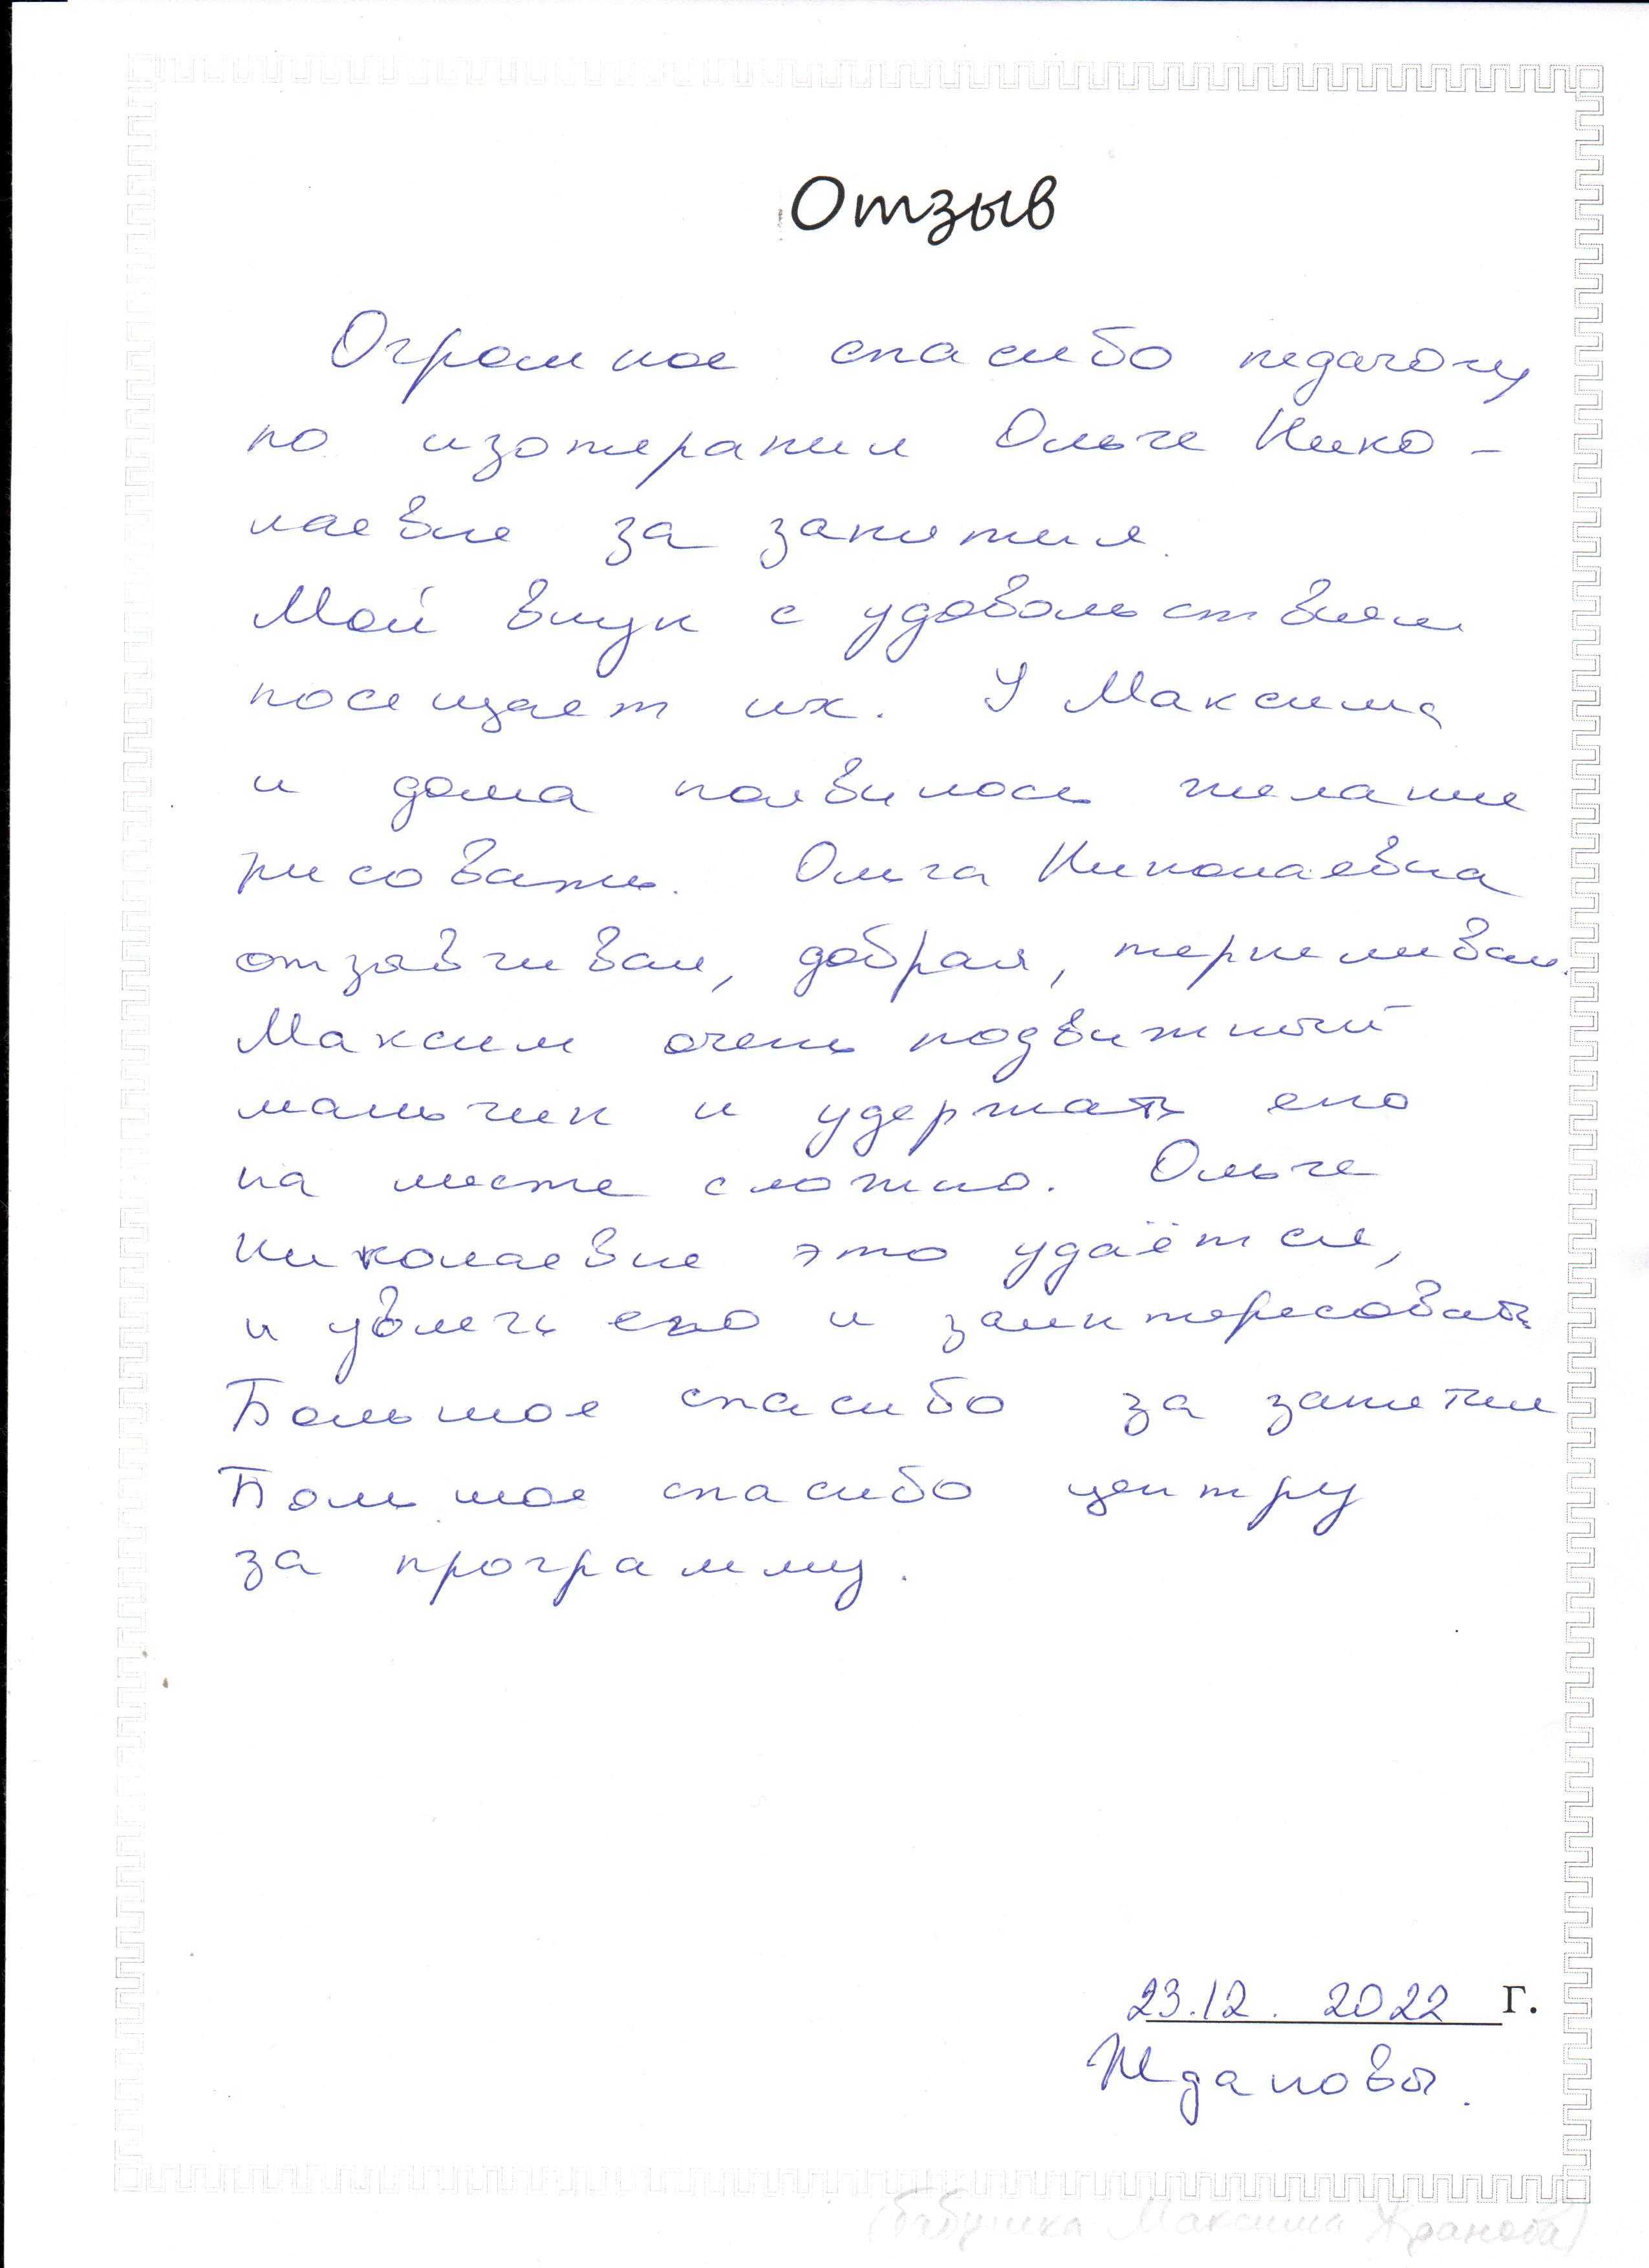 Отзыв
Огромное спасибо педагогу
по изотерапии Ольге Нико-
лаевне за занятия.
Мой внук с удовольствием
посещает их. У Максима
и дома появилось желание
рисовать. Ольга Николаевна
отзывчивая, добрая, терпеливая.
Максим очень подвижный
мальчик и удержать его
на месте сложно. Ольге
Николаевне это удаётся,
и увлечь его и заинтересовать
Большое спасибо за занятия
Большое спасибо центру
за программу.
23.12. 2022 г.
Ждановы.
(бабушка Максима